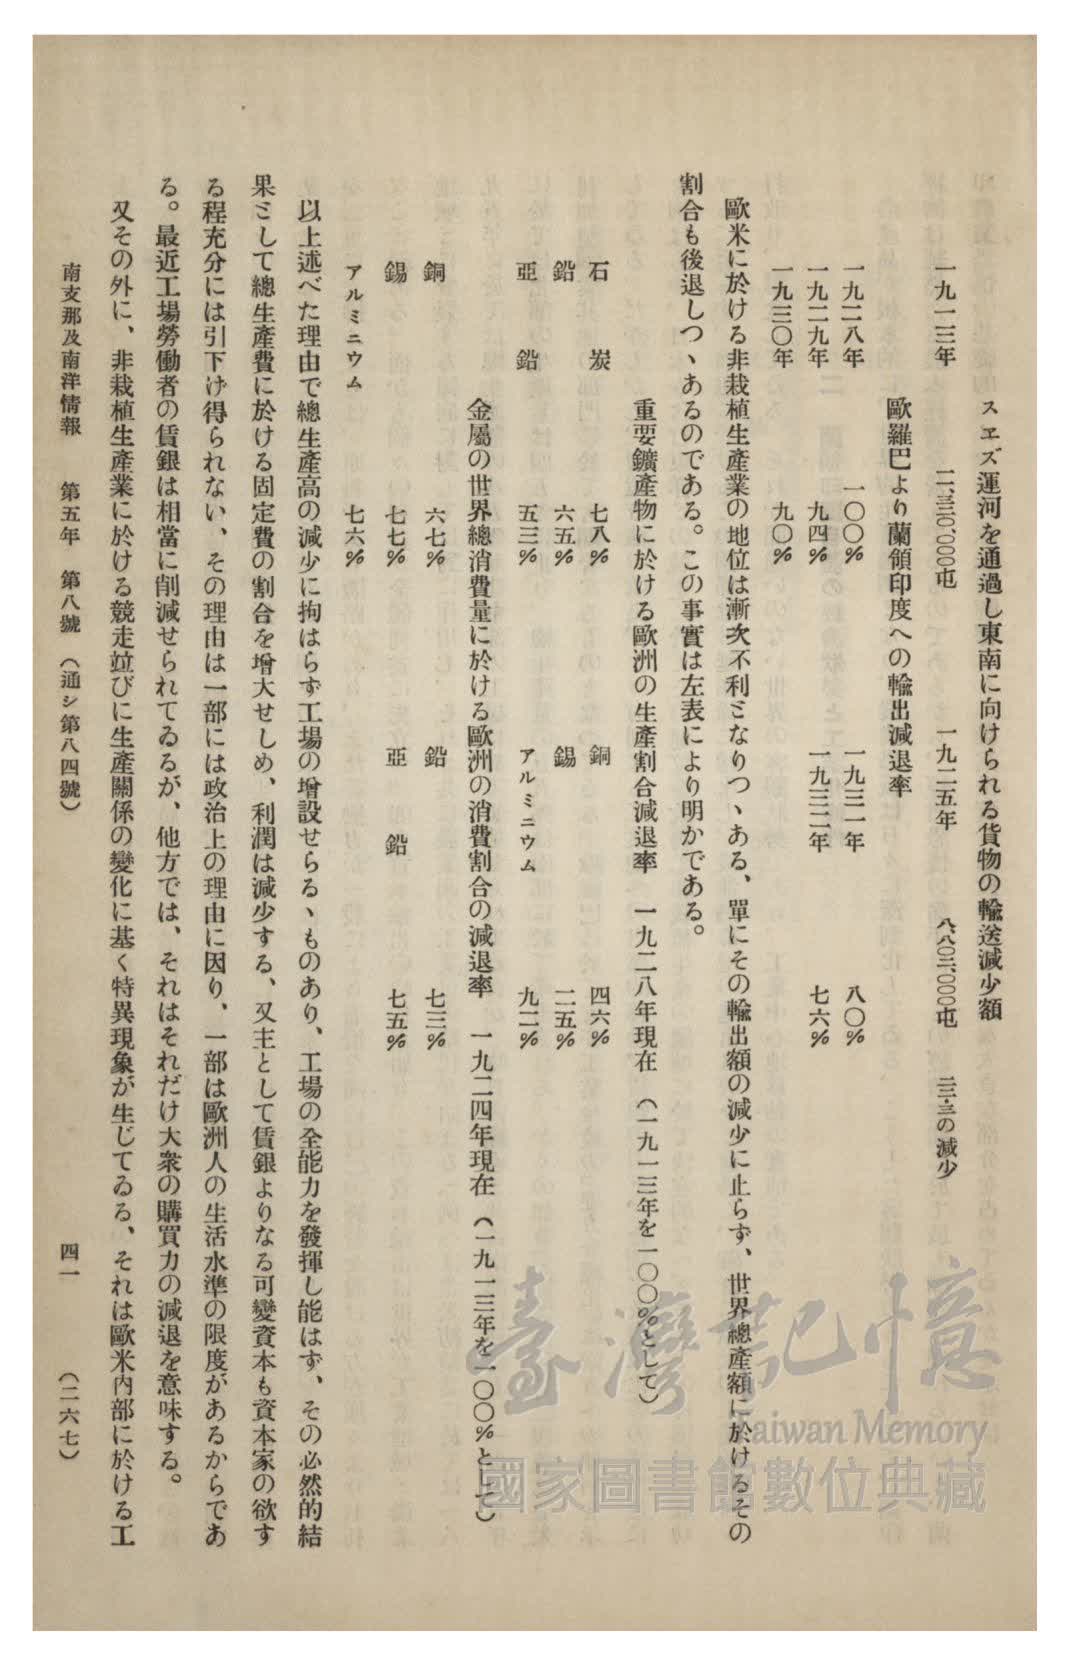 スヱズ運河を通過し東南に向けられる貨物の輸送減少額
一九一三年　一一、三一〇、〇〇〇屯　一九二五年　八、八〇三、〇〇〇屯　二三・三の減少
歐羅巴より蘭領印度への輸出減退率
一九二八年　一〇〇%　一九三一年　八〇%
一九二九年　九四%　一九三二年　七六%
一九三〇年　九〇%
歐米に於ける非栽植生産業の地位は漸次不利ミなりつヽある、單にその輸出額の減少に止らず、世界總産額に於けるその
割合も後退しつヽあるのである。この事實は左表により明かである。
重要鑛産物に於ける歐洲の生産割合減退率　一九二八年現在　（一九一三年を一〇〇%として）
石炭　七八%　銅　四六%
鉛　六五%　錫　二五%
亞鉛　五三%　アルミニウム　九二%
金屬の世界總消費量に於ける歐洲の消費割合の減退率　一九二四年現在　（一九一三年を一〇〇%として）
銅　六七%　鉛　七三%
錫　七七%　亞鉛　七五%
アルミニウム　七六%
以上述べた理由で總生産高の減少に拘はらず工場の增設せらるヽものあり、工場の全能力を發揮し能はず、その必然的結
果ミして總生産費に於ける固定費の割合を增大せしめ、利潤は減少する、又主として賃銀よりなる可變資本も資本家の欲す
る程充分には引下げ得られない、その理由は一部には政治上の理由に因り、一部は歐洲人の生活水準の限度があるからであ
る。最近工場勞働者の賃銀は相當に削減せられてゐるが、他方では、それはそれだけ大衆の購買力の減退を意味する。
又その外に、非栽植生産業に於ける競走竝びに生産關係の變化に基く特異現象が生じてゐる、それは歐米内部に於ける工
南支那及南洋情報　第五年　第八號　（通シ第八四號）　四一　（二六七）
臺灣記憶
Taiwan Memory
國家圖書館數位典藏